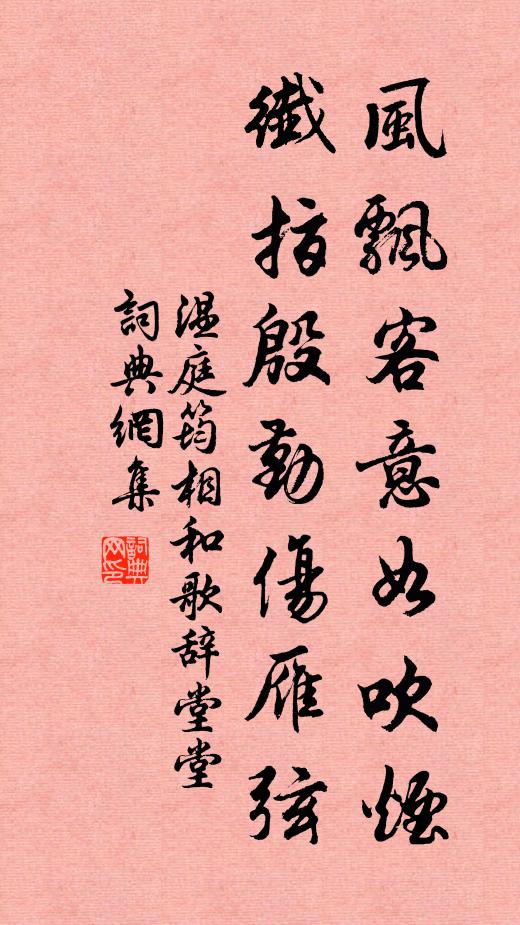 風飄客意如吹煙
纖指殷勤傷雁弦
温庭筠相和歌辞堂堂
詞典網集
詞典
网印